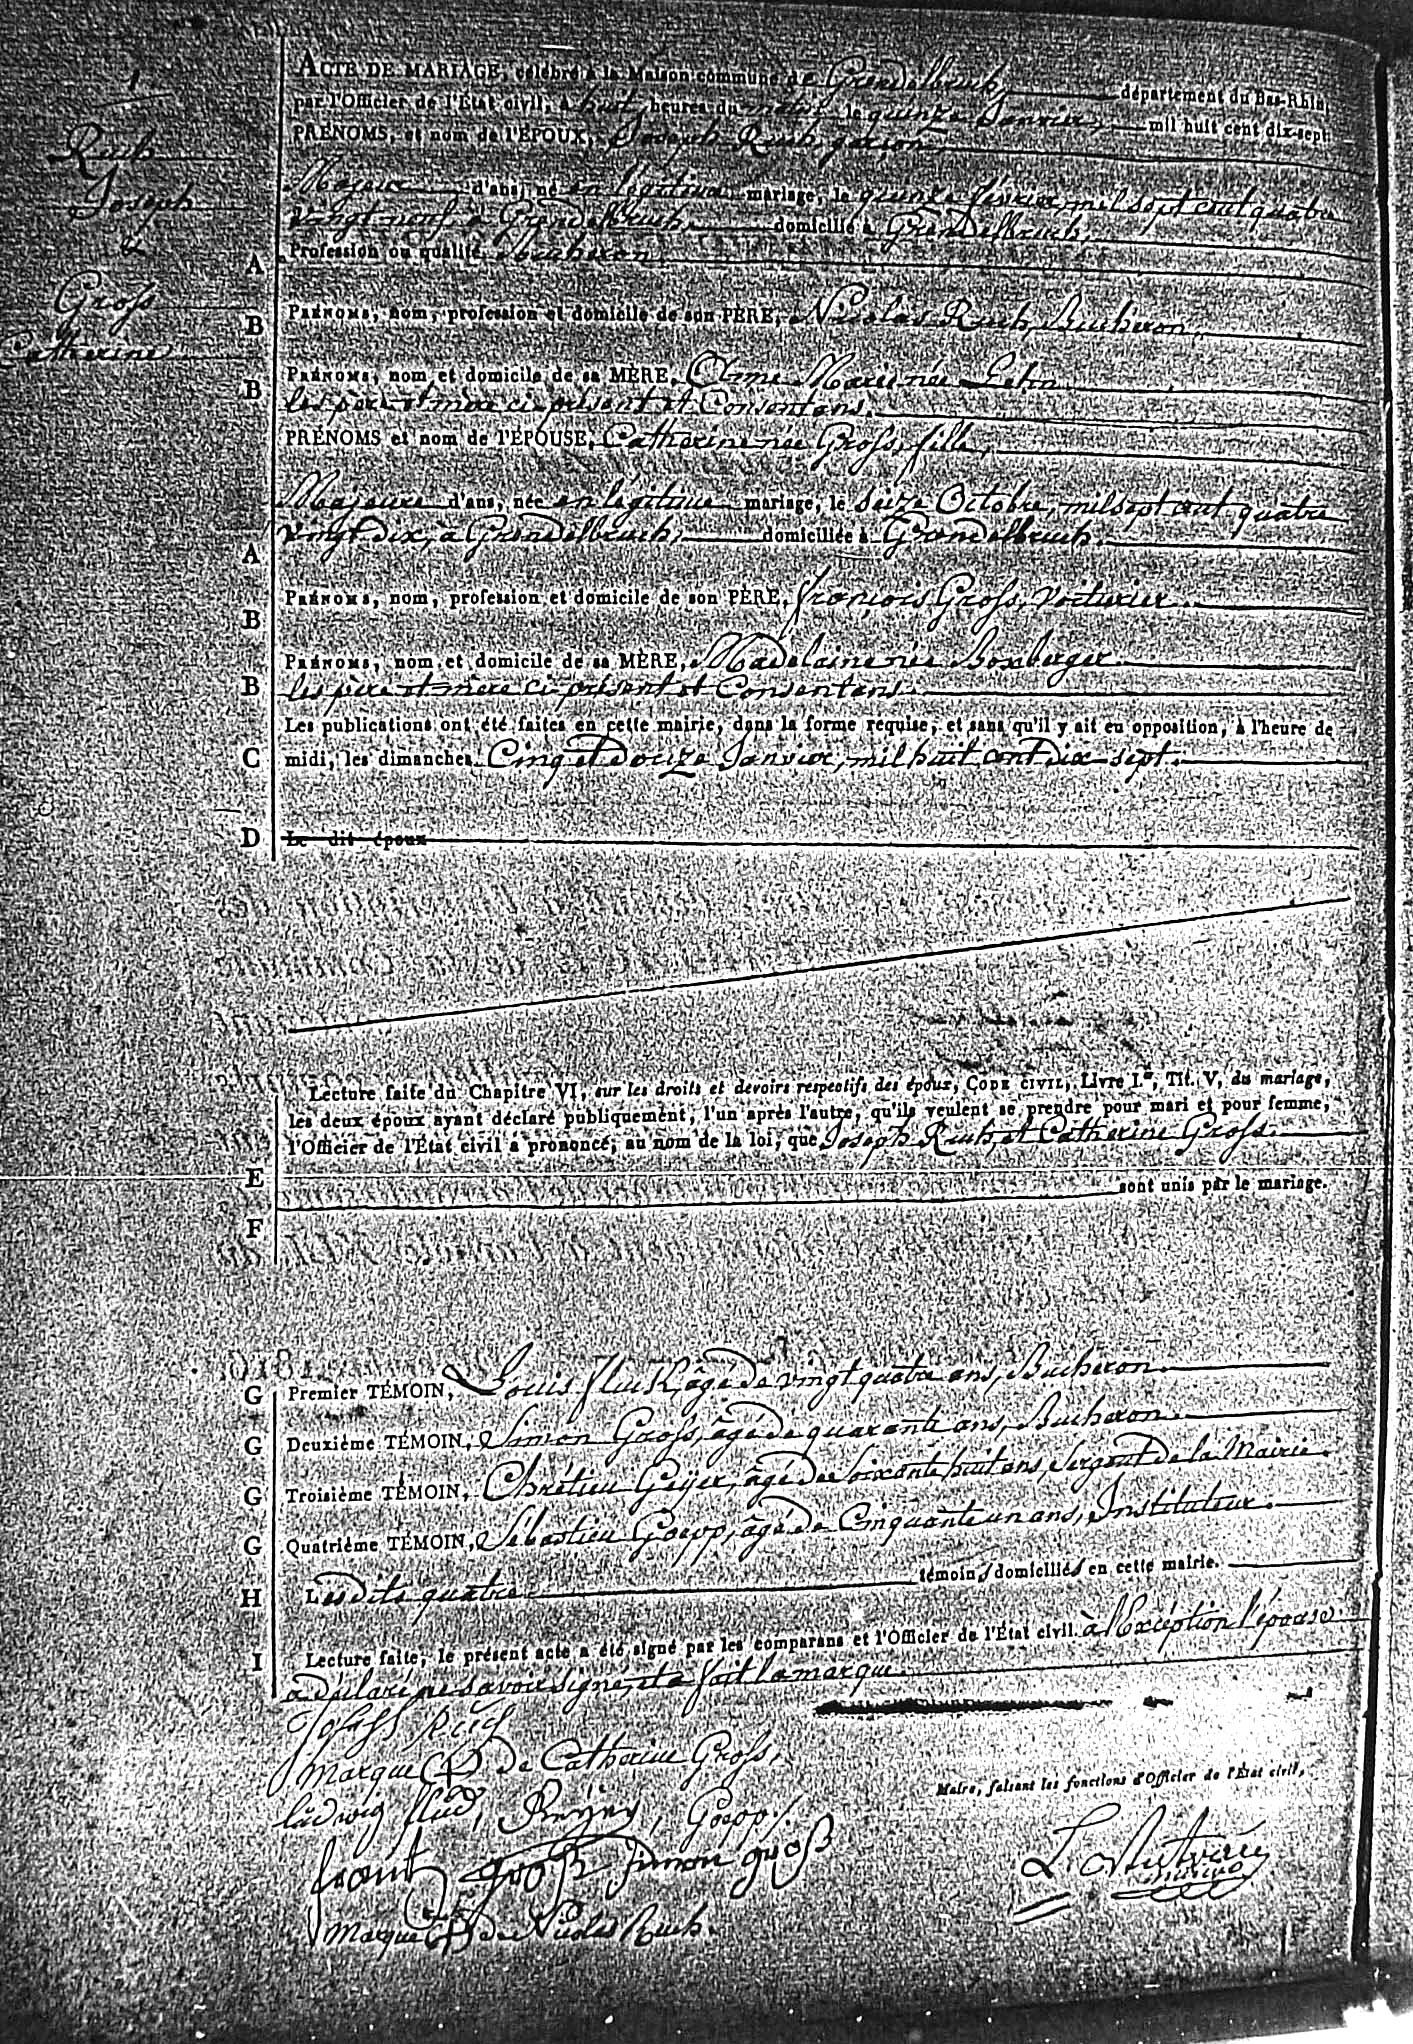 1
Ruch
Joseph
&
Gross
Catherine
ACTE DE MARIAGE, célébré à la Maison commune de Grendelbruch, département du Bas-Rhin,
par l'Officier de l'État civil, à huit heures du matin le quinze Janvier, mil huit cent dix-sept
PRÉNOMS, et nom de l'ÉPOUX, Joseph Ruch, garçon,
Majeur d'ans, né en légitime mariage, le quinze février, mil sept cent quatre
vingt neuf à Grendelbruch, domicilié à Grendelbruch,
A Profession ou qualité Bucheron,
B PRÉNOMS, nom, profession et domicile de son PÈRE, Nicolas Ruch, Bucheron,
B PRÉNOMS, nom et domicile de sa MÈRE, Anne Marie née Lehn
les père et mère ci présent et Consentans.
PRÉNOMS et nom de l'ÉPOUSE, Catherine née Gross, fille,
Majeure d'ans, née en légitime mariage, le seize Octobre, mil sept cent quatre
A vingt dix, à Grendelbruch, domiciliée à Grendelbruch.
B PRÉNOMS, nom, profession et domicile de son PÈRE, françois Gross, Voiturier.
B PRÉNOMS, nom et domicile de sa MÈRE, Madelaine née Boxberger.
les père et mère ci présent et Consentans.
Les publications ont été faites en cette mairie, dans la forme requise, et sans qu'il y ait eu opposition, à l'heure de
C midi, les dimanches Cinq et Douze Janvier, mil huit cent dix-sept.
D Le dit époux
Lecture faite du Chapitre VI, sur les droits et devoirs respectifs des époux, CODE CIVIL, Livre I.er, Tit. V, du mariage,
les deux époux ayant déclaré publiquement, l'un après l'autre, qu'ils veulent se prendre pour mari et pour femme,
l'Officier de l'État civil a prononcé, au nom de la loi, que Joseph Ruch, et Catherine Gross.
E sont unis par le mariage.
F
G Premier TÉMOIN, Louis fluck, âgé de vingt quatre ans, Bucheron.
G Deuxième TÉMOIN, Simon Gross, âgé de quarante ans, Bucheron.
G Troisième TÉMOIN, Chrétien Geyer, âgé de Soixante huit ans, Sergent de la Mairie.
G Quatrième TÉMOIN, Sébastien Goepp, âgé de Cinquante un ans, Instituteur.
H Lesdits quatre témoins domiciliés en cette mairie.
I Lecture faite, le présent acte a été signé par les comparans et l'Officier de l'État civil. à l'Exception l'épouse
a déclaré ne savoir signé, et a fait la marque.
Joseph Ruch
Marque de Catherine Gross,
Ludwig fluck, Geyer, Goepp.
Maire, faisant les fonctions d'Officier de l'État civil,
frantz groß simon groß
maire
Marque de Nicolas Ruch.